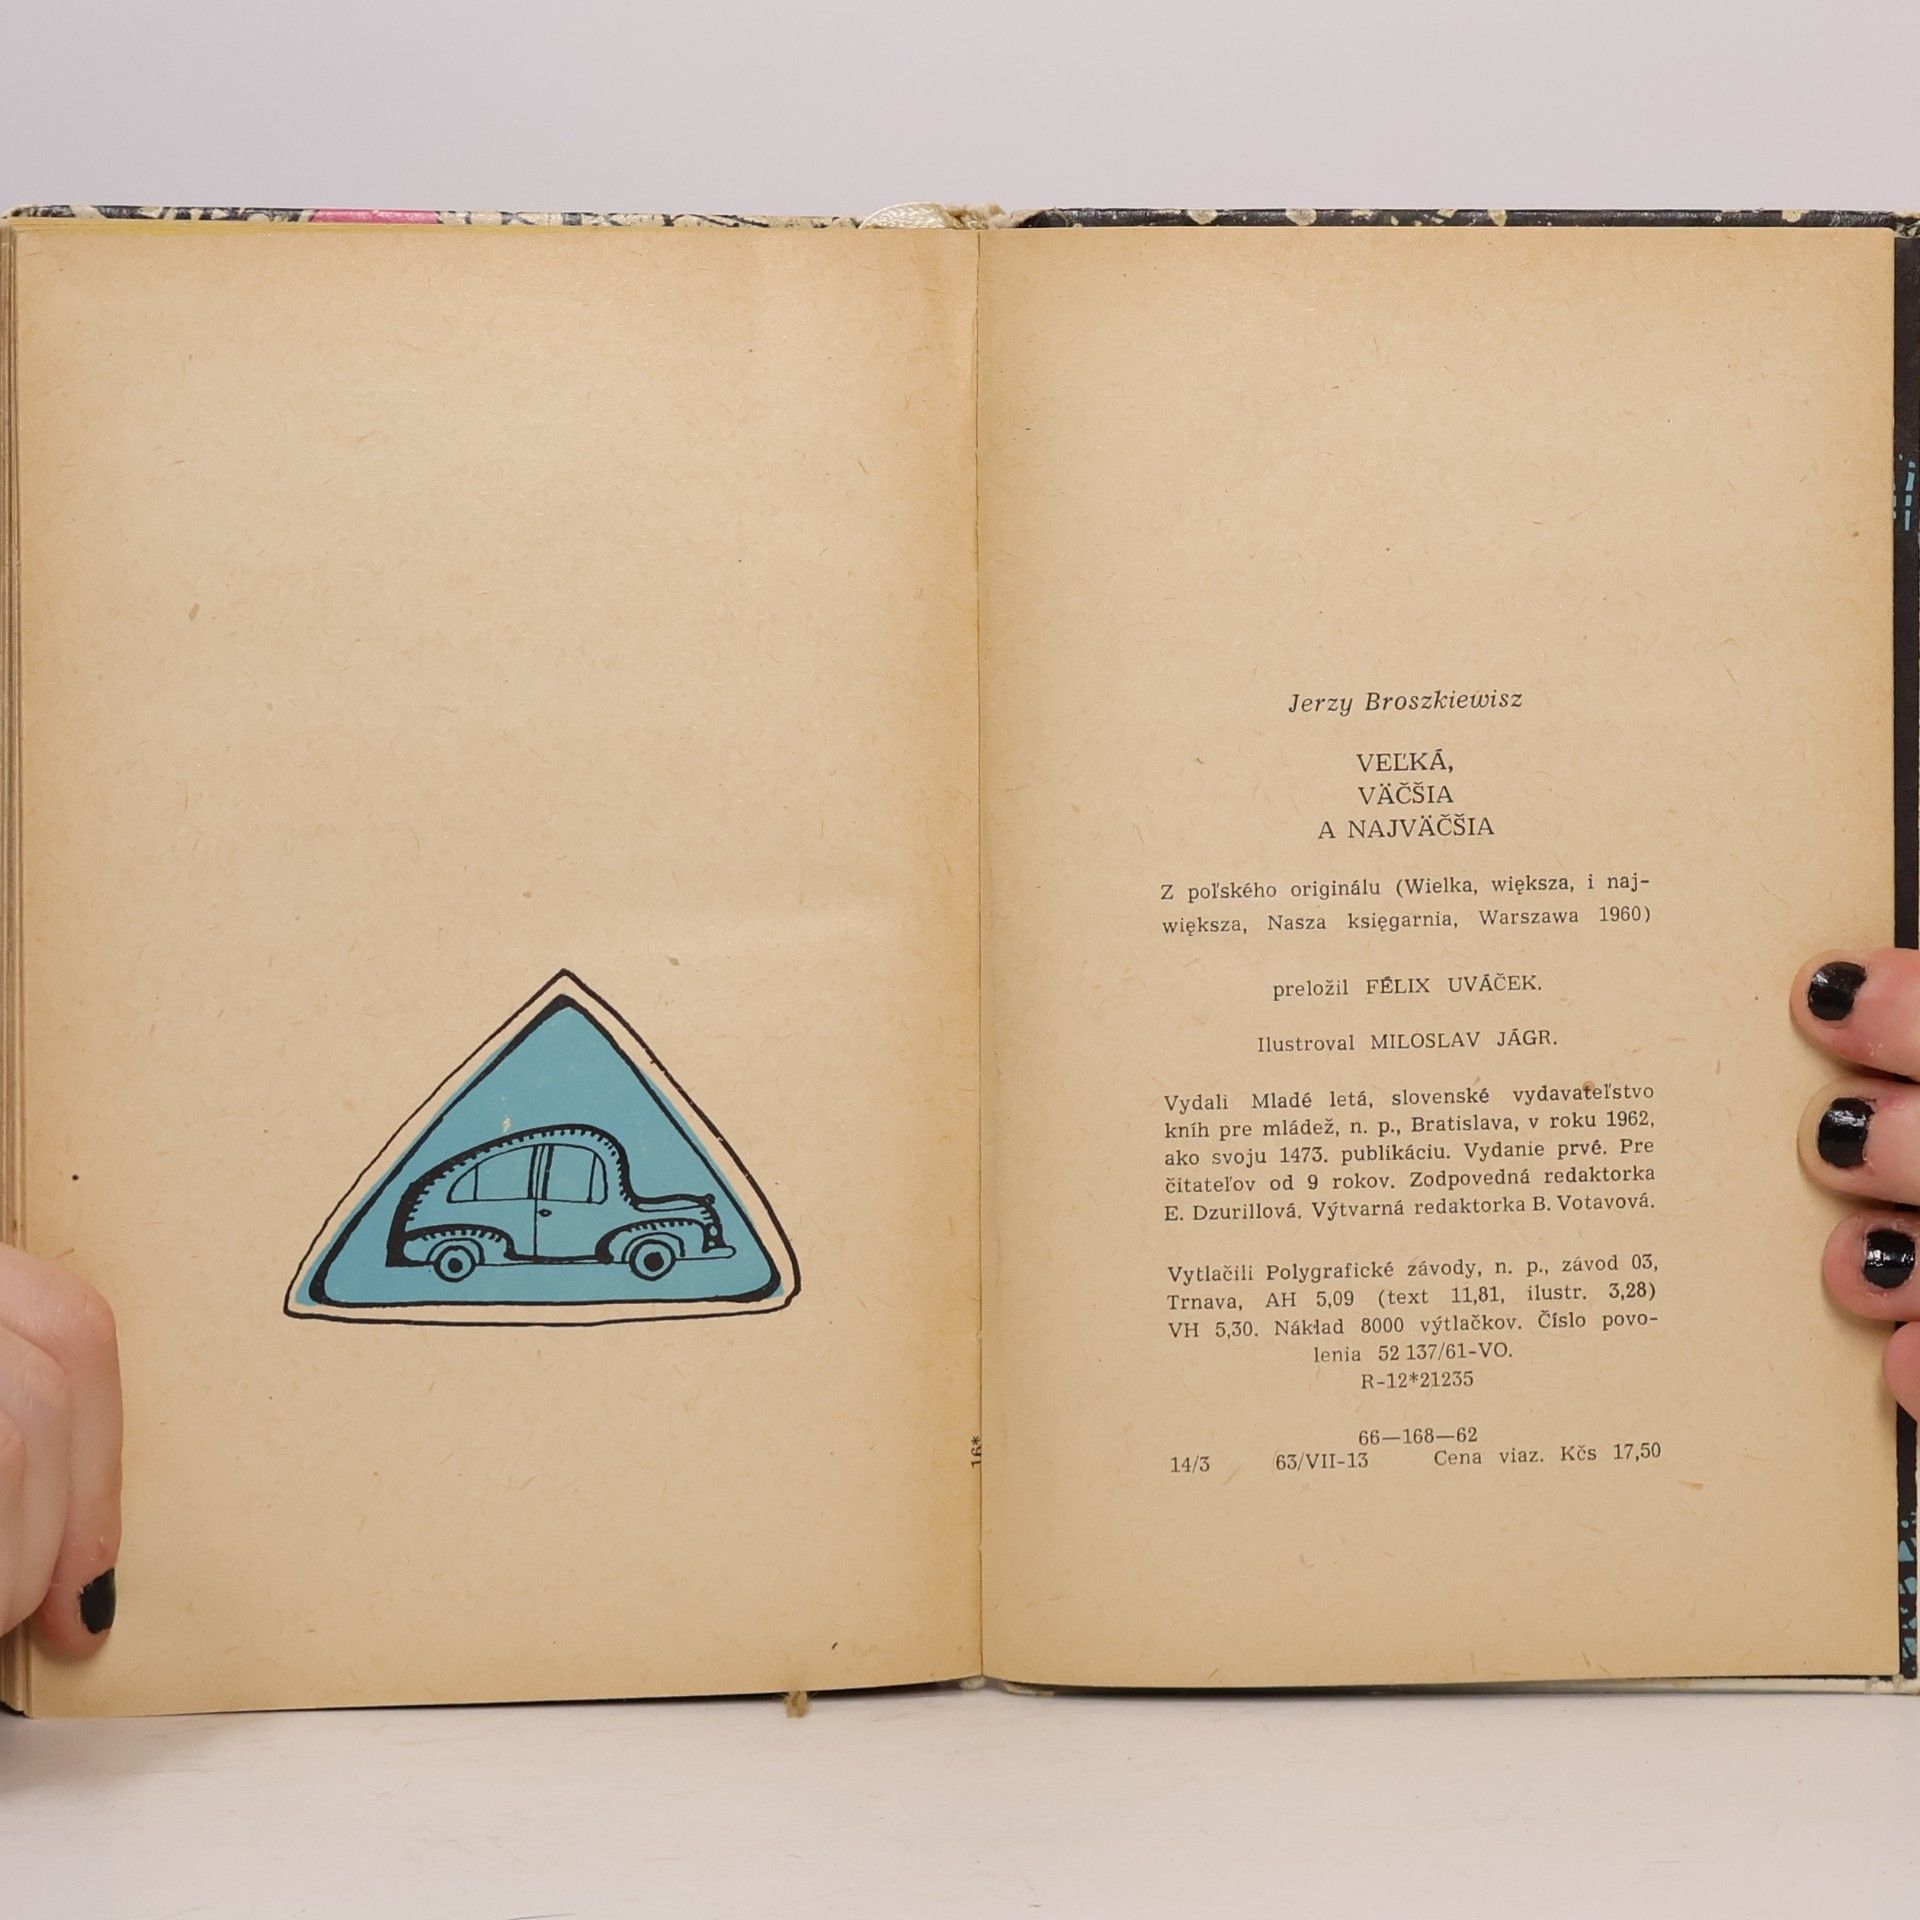 Jerzy Broszkiewisz
VEĽKÁ,
VÄČŠIA
A NAJVÄČŠIA
Z poľského originálu (Wielka, większa, i naj-
większa, Nasza księgarnia, Warszawa 1960)
preložil FÉLIX UVÁČEK.
Ilustroval MILOSLAV JÁGR.
Vydali Mladé letá, slovenské vydavateľstvo
kníh pre mládež, n. p., Bratislava, v roku 1962,
ako svoju 1473. publikáciu. Vydanie prvé. Pre
čitateľov od 9 rokov. Zodpovedná redaktorka
E. Dzurillová. Výtvarná redaktorka B. Votavová.
Vytlačili Polygrafické závody, n. p., závod 03,
Trnava, AH 5,09 (text 11,81, ilustr. 3,28)
VH 5,30. Náklad 8000 výtlačkov. Číslo povo-
lenia 52 137/61-VO.
R-12*21235
66—168—62
14/3 63/VII-13 Cena viaz. Kčs 17,50
16*